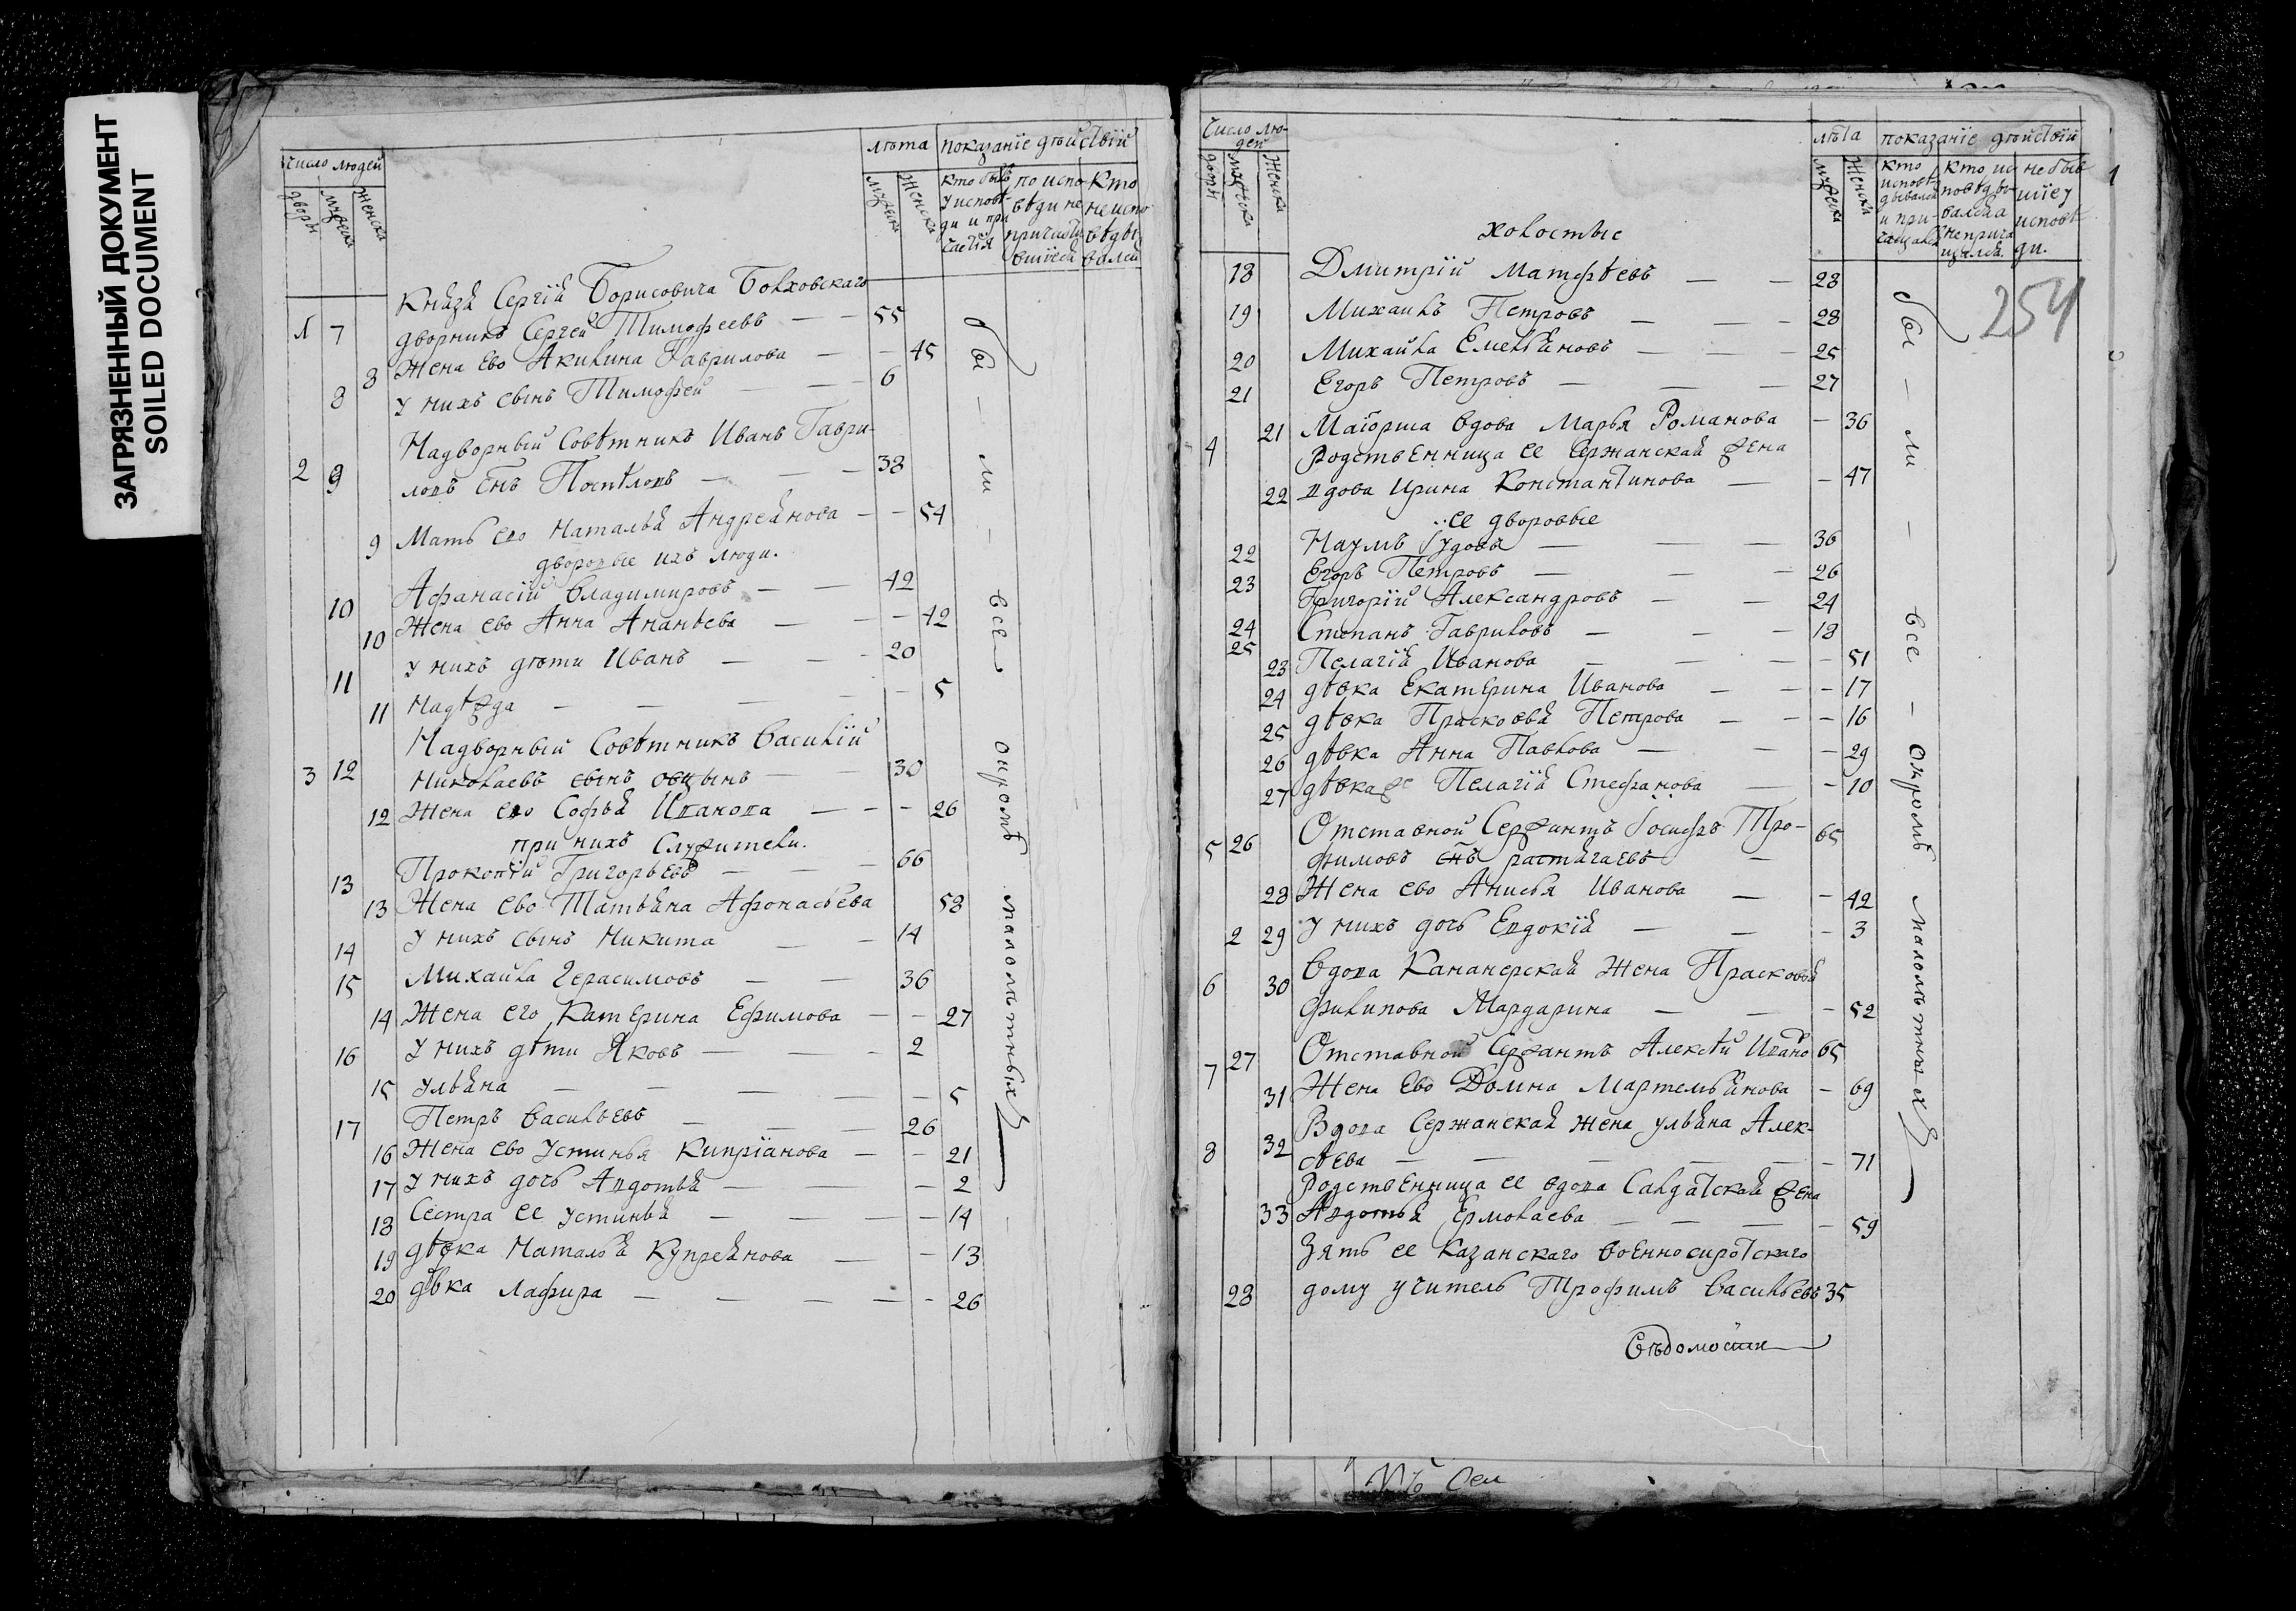 ЗАГРЯЗНЕННЫЙ ДОКУМЕНТ
SOILED DOCUMENT
число людей
лѣта показанїе дѣйствїй
дворы мужеска женска
мужеска женска
кто былъ у исповѣди и при
по испо-вѣди не
кто не испо-вѣды-вался
Князя Сергїй Борисовича Болховскаго
1 7 дворникъ Сергей Тимофеевъ — — 55
8 Жена ево Акилина Гаврилова — — 45
8 У нихъ сынъ Тимофей — 6
Надворный Совѣтникъ Иванъ Гаври-
2 9 ловъ снъ Поспѣловъ — — 38
9 Мать ево Наталья Андреянова — — 54
дворовые ихъ люди.
10 Афанасїй Владимировъ — — 42
10 Жена ево Анна Ананьева — — — 42
11 У нихъ дѣти Иванъ — — — 20
11 Надѣжда — — — — — 5
Надворный Совѣтникъ Василїй
3 12 Николаевъ сынъ овцынъ — — 30
12 Жена ево Софья Иванова — — — 26
при нихъ служители.
13 Прокопїй Григорьевъ — — — 66
13 Жена ево Татьяна Афонасьева 58
14 У нихъ сынъ Никита — — 14
15 Михайла Герасимовъ — — 36
14 Жена его Катерина Ефимова — — 27
16 У нихъ дѣти Яковъ — — — 2
15 Ульяна — — — — — 5
17 Петръ Васильевъ — — — 26
16 Жена ево Устинья Кипрїанова — — 21
17 У нихъ дочь Авдотья — — — 2
18 Сестра ее Устинья — — — 14
19 дѣвка Наталья Купреянова — — 13
20 дѣвка Лафира — — — — — 26
были — все окромѣ малолѣтныхъ
Число лю-дей
лѣта показанїе дѣйствїй
дворы мужеска женска
мужеска женска
кто исповѣ-дывался и при-чащался
кто ис-повѣды-вался а не прича-щался.
не быв-шїе у исповѣ-ди.
1
254
холостые
18 Дмитрїй Матфѣевъ — — 28
19 Михаилъ Петровъ — — — 28
20 Михайла Емельяновъ — — — 25
21 Егоръ Петровъ — — — 27
4 21 Маїорша вдова Марья Романова — 36
Родственница ее Сержанская жена
22 вдова Ирина Константинова — — 47
ее дворовые
22 Наумъ Їудовъ — — — 36
23 Егоръ Петровъ — — — 26
24 Григорїй Александровъ — — 24
25 Степанъ Гавриловъ — — — 18
23 Пелагїя Иванова — — — — 51
24 дѣвка Екатерина Иванова — — — 17
25 дѣвка Прасковья Петрова — — — 16
26 дѣвка Анна Павлова — — — 29
27 дѣвка же Пелагїя Стефанова — — 10
Отставной Сержантъ Їосифъ Тро-
5 26 фимовъ снъ растягаевъ — 65
28 Жена ево Анисья Иванова — — 42
2 29 У нихъ дочь Евдокїя — — — 3
6 30 Вдова Канонерская Жена Прасковья
Филипова Мардарина — — — 52
7 27 Отставной Сержантъ Алексѣй Ивано 65
31 Жена Ево Домна Мартемьянова — 69
Вдова Сержанская жена ульяна Алек-
8 32 сѣева — — — — — — 71
Родственница ее вдова Салдатская жена
33 Авдотья Ермолаева — — — — 59
Зять ее Казанскаго военносиротскаго
28 дому учитель Трофимъ Васильевъ 35
были — все — окромѣ малолѣтныхъ
Вѣдомости